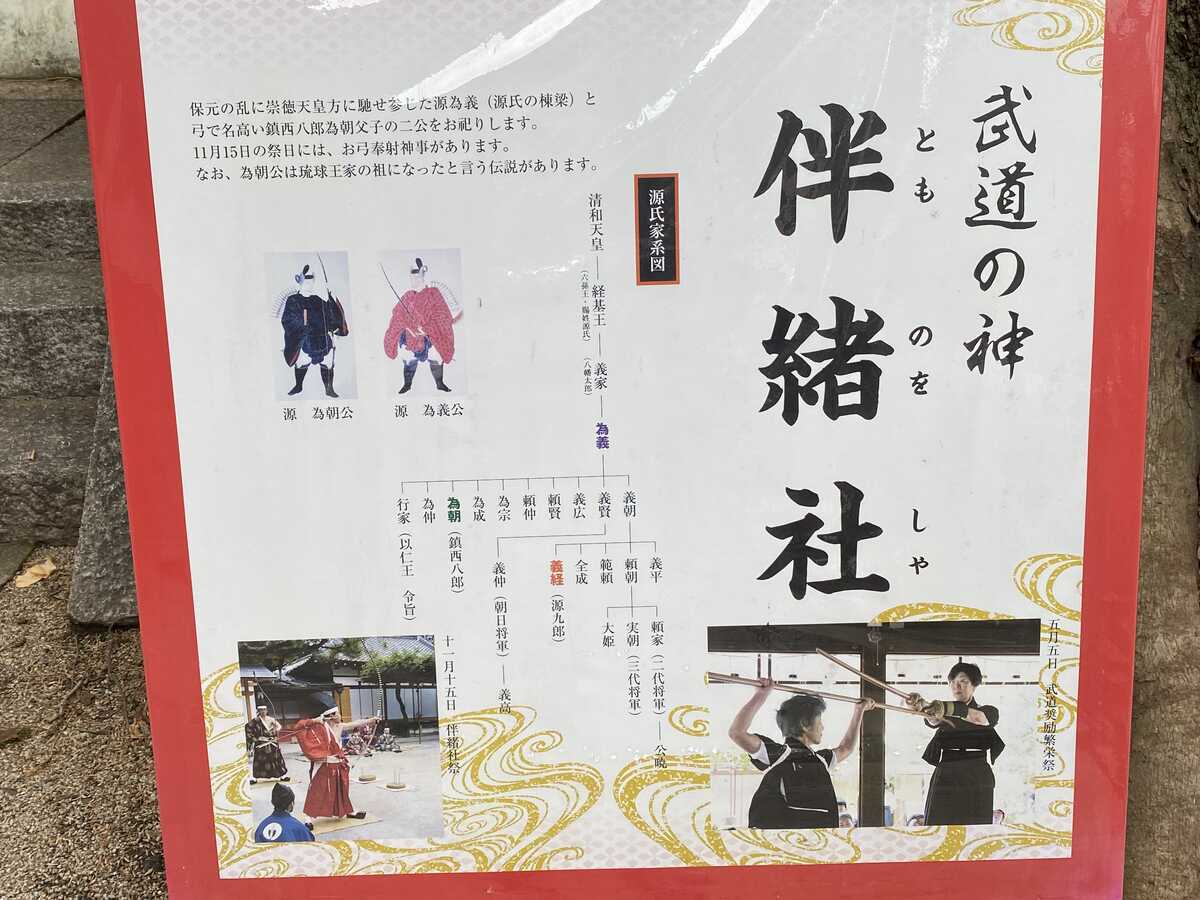 武道の神
伴緒社
とものをしゃ
保元の乱に崇徳天皇方に馳せ参じた源為義（源氏の棟梁）と
弓で名高い鎮西八郎為朝父子の二公をお祀りします。
11月15日の祭日には、お弓奉射神事があります。
なお、為朝公は琉球王家の祖になったと言う伝説があります。
源氏家系図
清和天皇
経基王
（六孫王・賜姓源氏）
義家
（八幡太郎）
為義
義朝
義賢
義広
頼賢
頼仲
為宗
為成
為朝（鎮西八郎）
為仲
行家（以仁王　令旨）
義平
頼朝
範頼
全成
義経（源九郎）
義仲（朝日将軍）
義高
頼家（二代将軍）
公暁
実朝（三代将軍）
大姫
源　為義公
源　為朝公
五月五日　武道奨励繁栄祭
十一月十五日　伴緒社祭